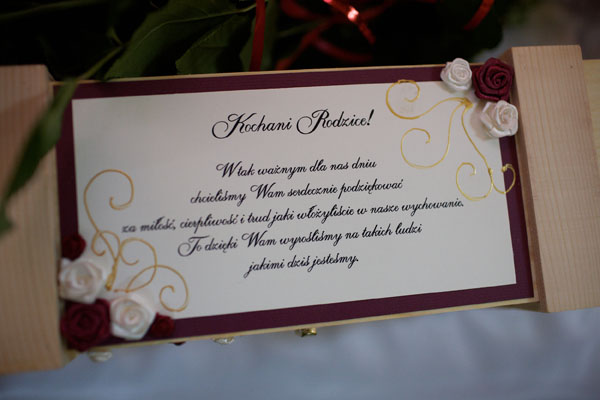 Kochani Rodzice!
W tak ważnym dla nas dniu
chcieliśmy Wam serdecznie podziękować
za miłość, cierpliwość i trud jaki włożyliście w nasze wychowanie.
To dzięki Wam wyrośliśmy na takich ludzi
jakimi dziś jesteśmy.